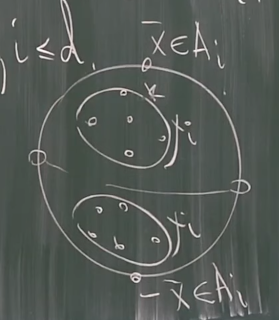 , i ≤ d.
x̄ ∈ A_i
x
x_i
x_i
-x̄ ∈ A_i